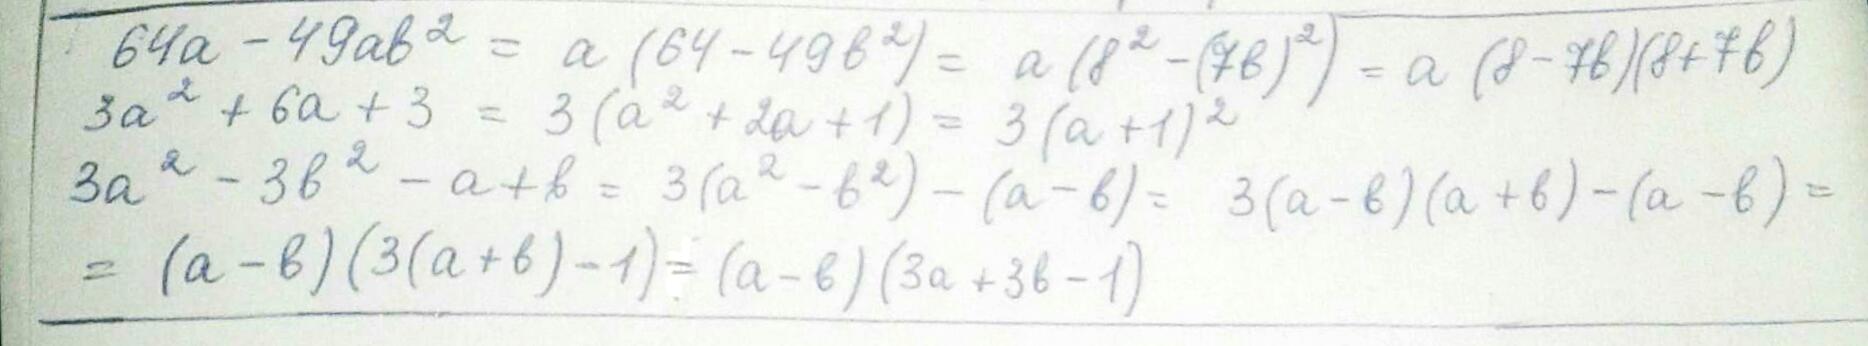 64a - 49ab² = a (64 - 49b²) = a (8² - (7b)²) = a (8 - 7b)(8 + 7b)
3a² + 6a + 3 = 3 (a² + 2a + 1) = 3 (a + 1)²
3a² - 3b² - a + b = 3(a² - b²) - (a - b) = 3(a - b)(a + b) - (a - b) =
= (a - b) (3(a + b) - 1) = (a - b) (3a + 3b - 1)